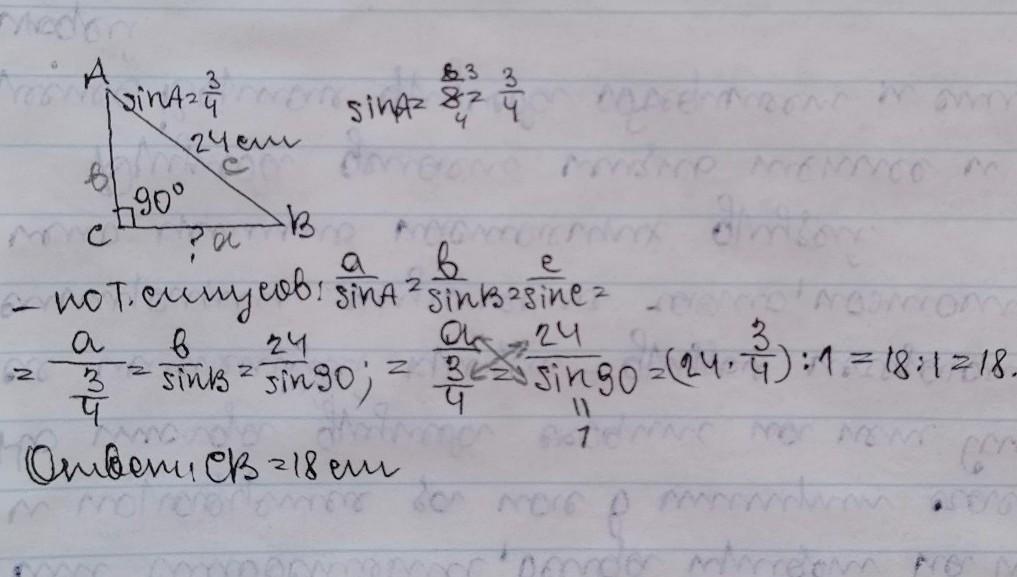 A
sinA = 3/4
24 см
c
в
90°
C
? a
B
sinA = 6/8 = 3/4
3
4
- по т. синусов: a/sinA = в/sinB = c/sinC =
= a/(3/4) = в/sinB = 24/sin90; = a/(3/4) = 24/sin90 = (24 · 3/4) : 1 = 18 : 1 = 18.
=
1
Ответ: CB = 18 см